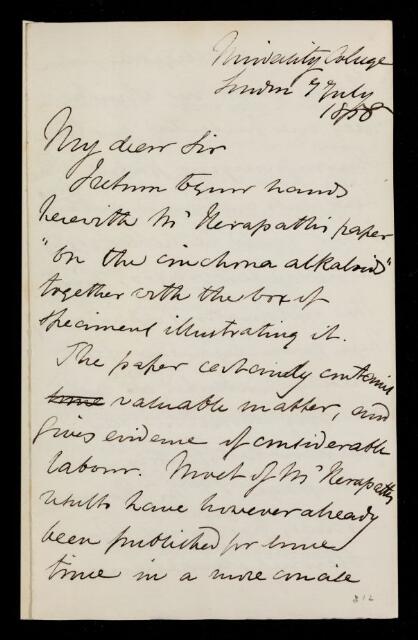 University College
London 7 July
1858
My dear Sir
I return to your hands
herewith Mr Herapath's paper
"On the cinchona alkaloids"
together with the box of
specimens illustrating it.
The paper certainly contains
some valuable matter, and
gives evidence of considerable
labour. Most of Mr Herapath's
results have however already
been published for some
time in a more concise
212